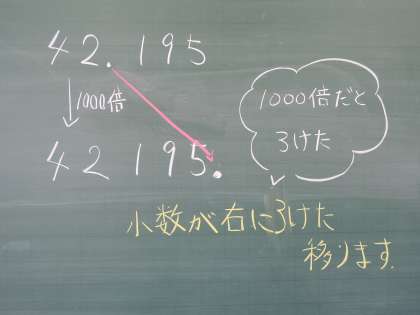 42.195
1000倍
42195.
1000倍だと
3けた
小数が右に3けた
移ります